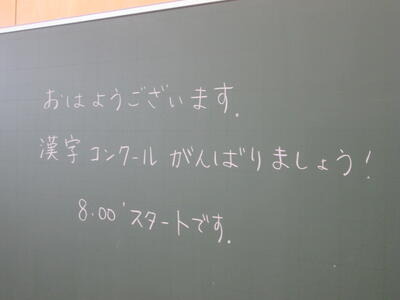 おはようございます.
漢字コンクール がんばりましょう!
8.00' スタートです.